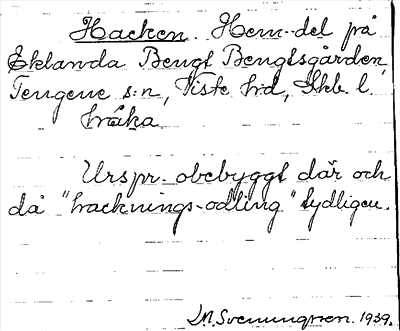 Hacken. Hem-del på
Eklanda Bengt Bengtsgården,
Tengene s:n, Viste h:d, Skb. l.
håka
Urspr. obebyggt där och
då "hacknings-odling" tydligen.
M. Svenungsson. 1939.